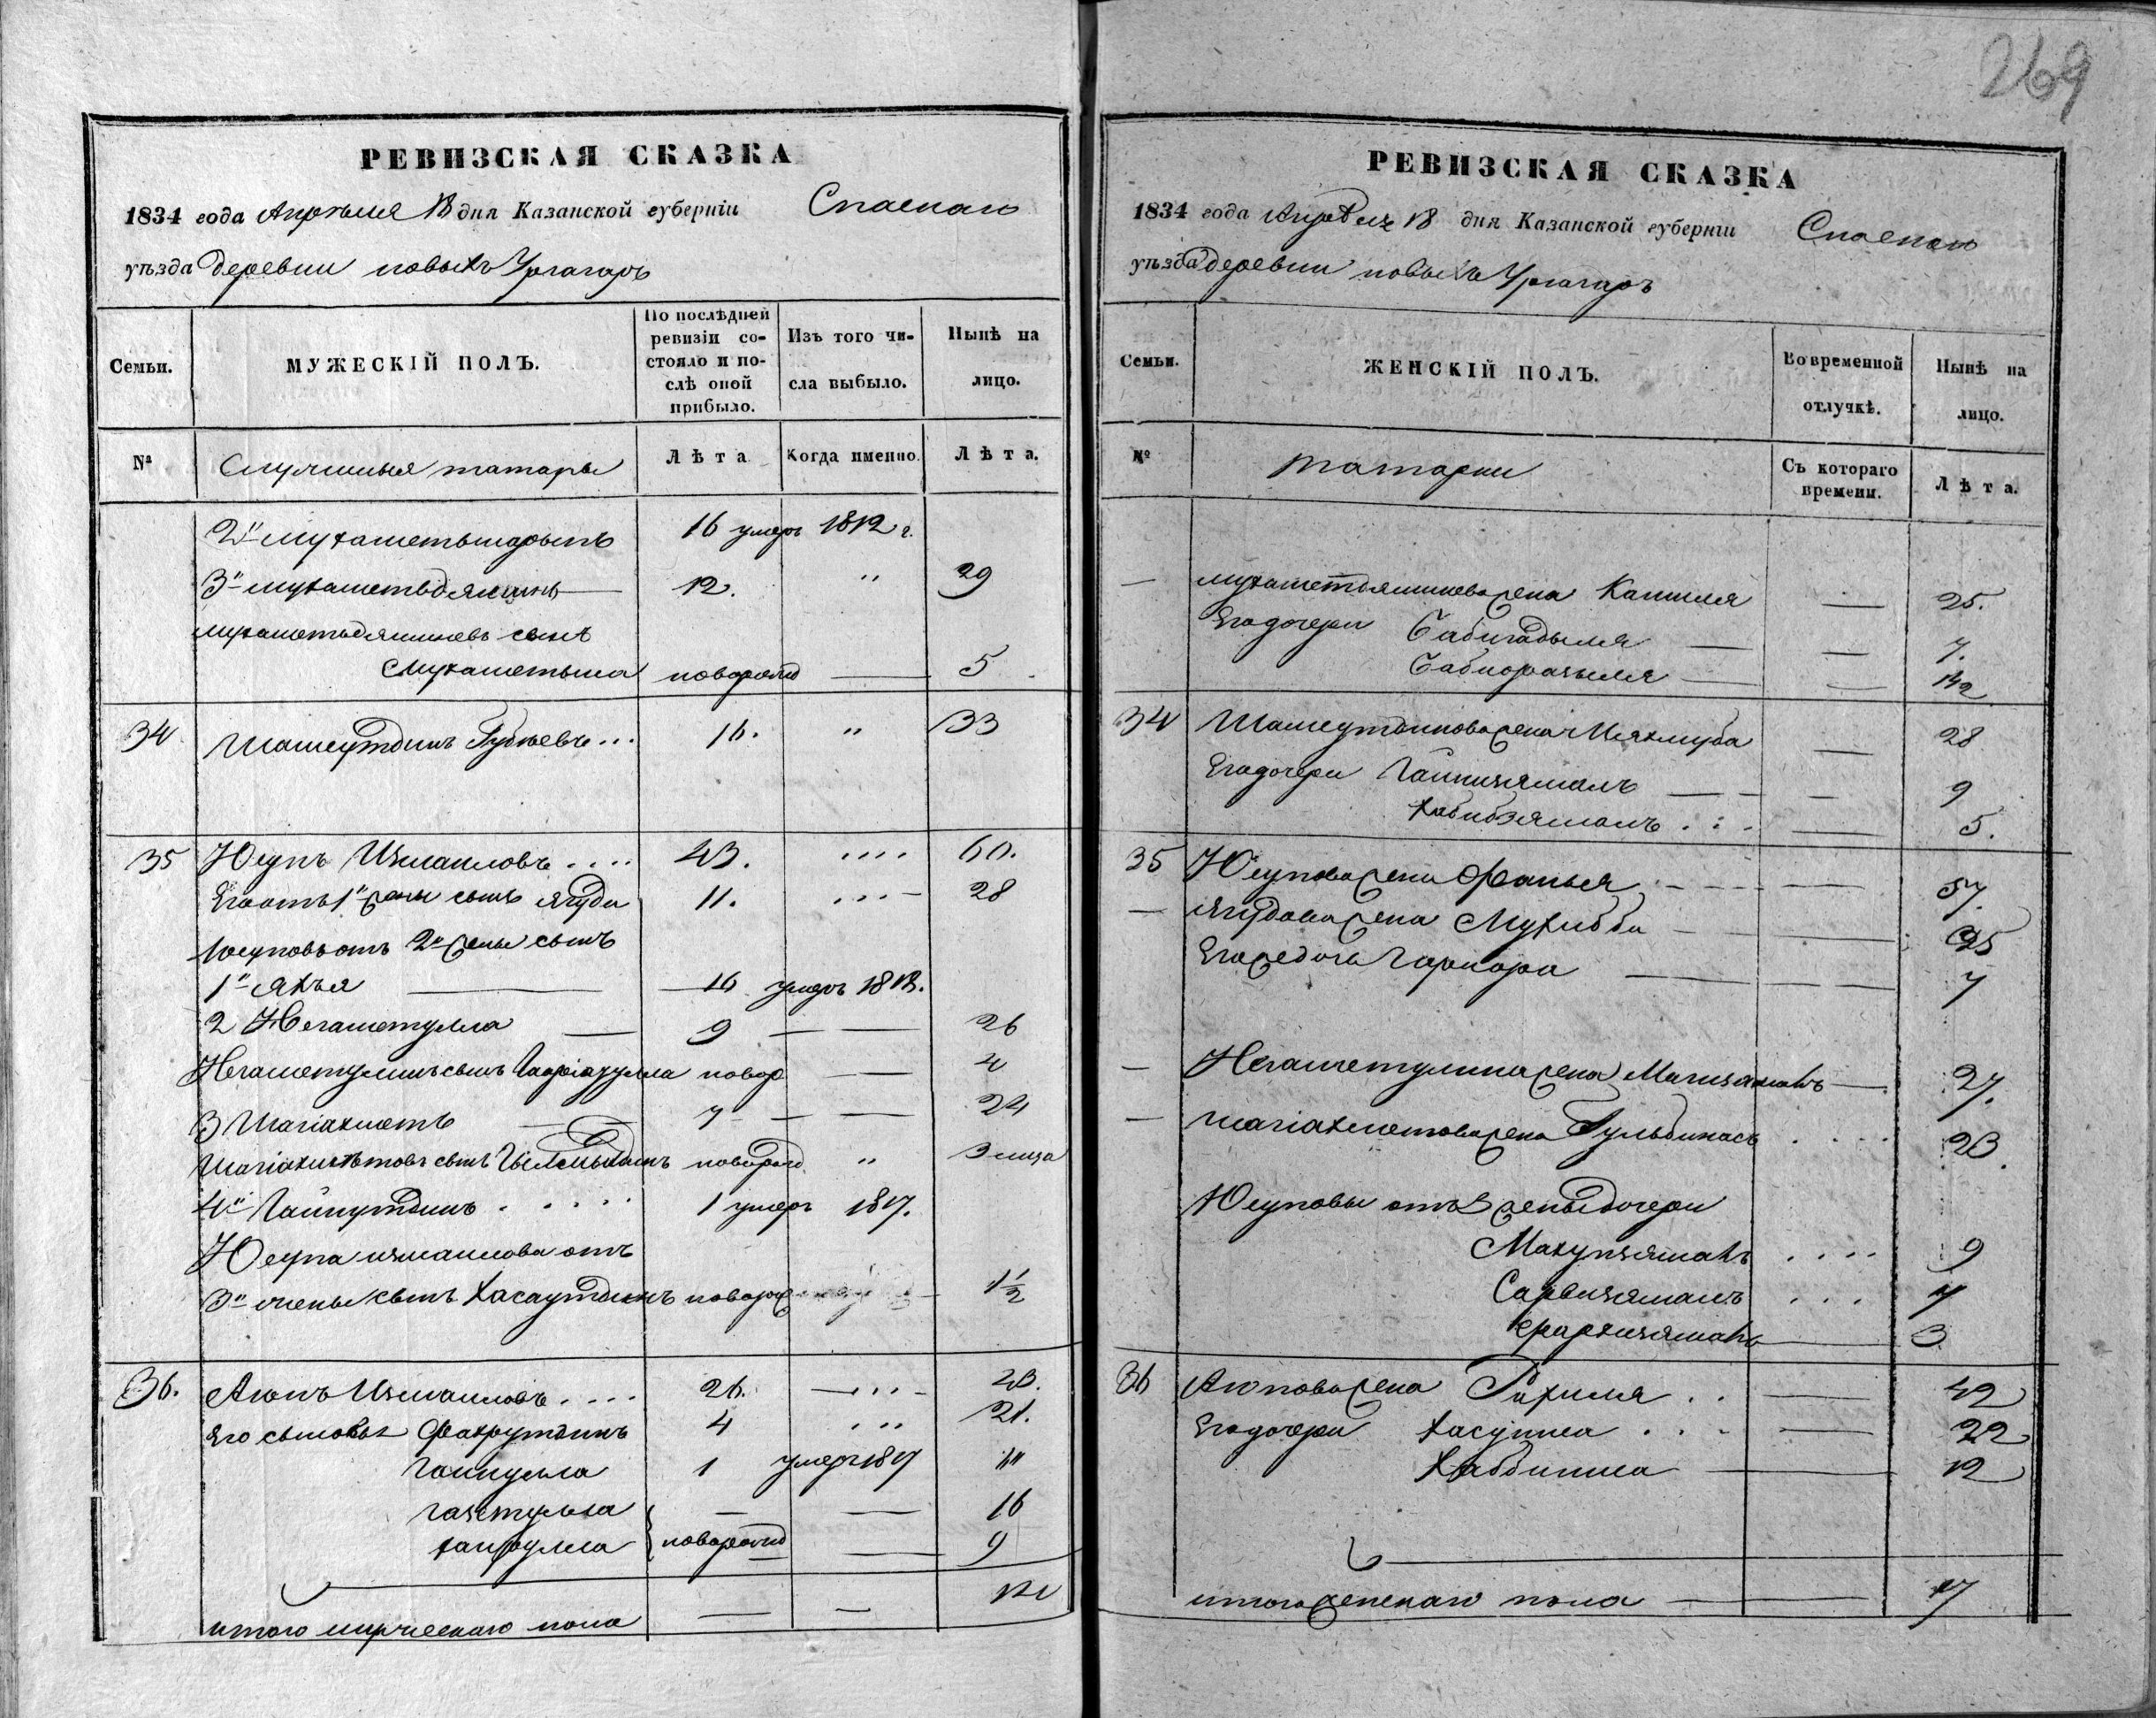 269
РЕВИЗСКАЯ СКАЗКА
1834 года Апреля 18 дня Казанской губерніи Спаскаго
уѣзда деревни новыхъ Ургагаръ
Семьи. МУЖЕСКІЙ ПОЛЪ. По послѣдней ревизіи состояло и послѣ оной прибыло. Изъ того числа выбыло. Нынѣ на лицо.
№ Служилыя татары Лѣта Когда именно. Лѣта.
2й Мухаметьшарыпъ 16 умеръ 1812 г.
3й Мухаметьдяминъ 12. " 29
Мухаметьдяминовъ сынъ
Мухаметьша новорожд 5
34 Шамсутдинъ Губеевъ ... 16. " 33
35 Юсупъ Измаиловъ .... 43. .... 60.
Его отъ 1й жены сынъ Ягуда 11. ... 28
Юсуповъ отъ 2й жены сынъ
1й Яхъя 16 умеръ 1818.
2 Негаметулла 9 26
Негаметуллинъ сынъ новор 4
3 Шагіахметъ 7 24
Шагіахметовъ сынъ новорожд " 3 мца
4й Гайнутдинъ .... 1 умеръ 1817.
Юсупа Измаилова отъ
3й жены сынъ Хасаутдинъ новорож 1½
36. Аюпъ Измаиловъ .... 26. ... 43.
Его сыновья Фахрутдинъ 4 ... 21.
Гайнулла 1 умеръ 1817 "
Газетулла 16
Хайрулла новорожд 9
итого мужескаго пола 12
РЕВИЗСКАЯ СКАЗКА
1834 года Апреля 18 дня Казанской губерніи Спаскаго
уѣзда деревни новыхъ Ургагаръ
Семьи. ЖЕНСКІЙ ПОЛЪ. Во временной отлучкѣ. Нынѣ на лицо.
№ татарки Съ котораго времени. Лѣта.
Мухаметьяминова жена Камиля 25.
Его дочери Бабигадыля 7.
34 Шамсутдинова жена 28
Его дочери Гайнизямалъ 9
Хабибзямалъ ... 5.
35 Юсупова жена Фанья 57.
Ягудова жена Мухибба 25
Его же дочь 7
Негаметуллина жена Магизямалъ 27.
Шагіахметова жена Гульбинасъ .... 23.
Юсуповы отъ 3 жены дочери
Махупзямалъ .... 9
Сарвизямалъ ... 7
Фархизямалъ 3
36 Аюпова жена Рахиля .. 42
Его дочери Хасупиа ... 22
Хаббиниса 12
итого женскаго пола 17